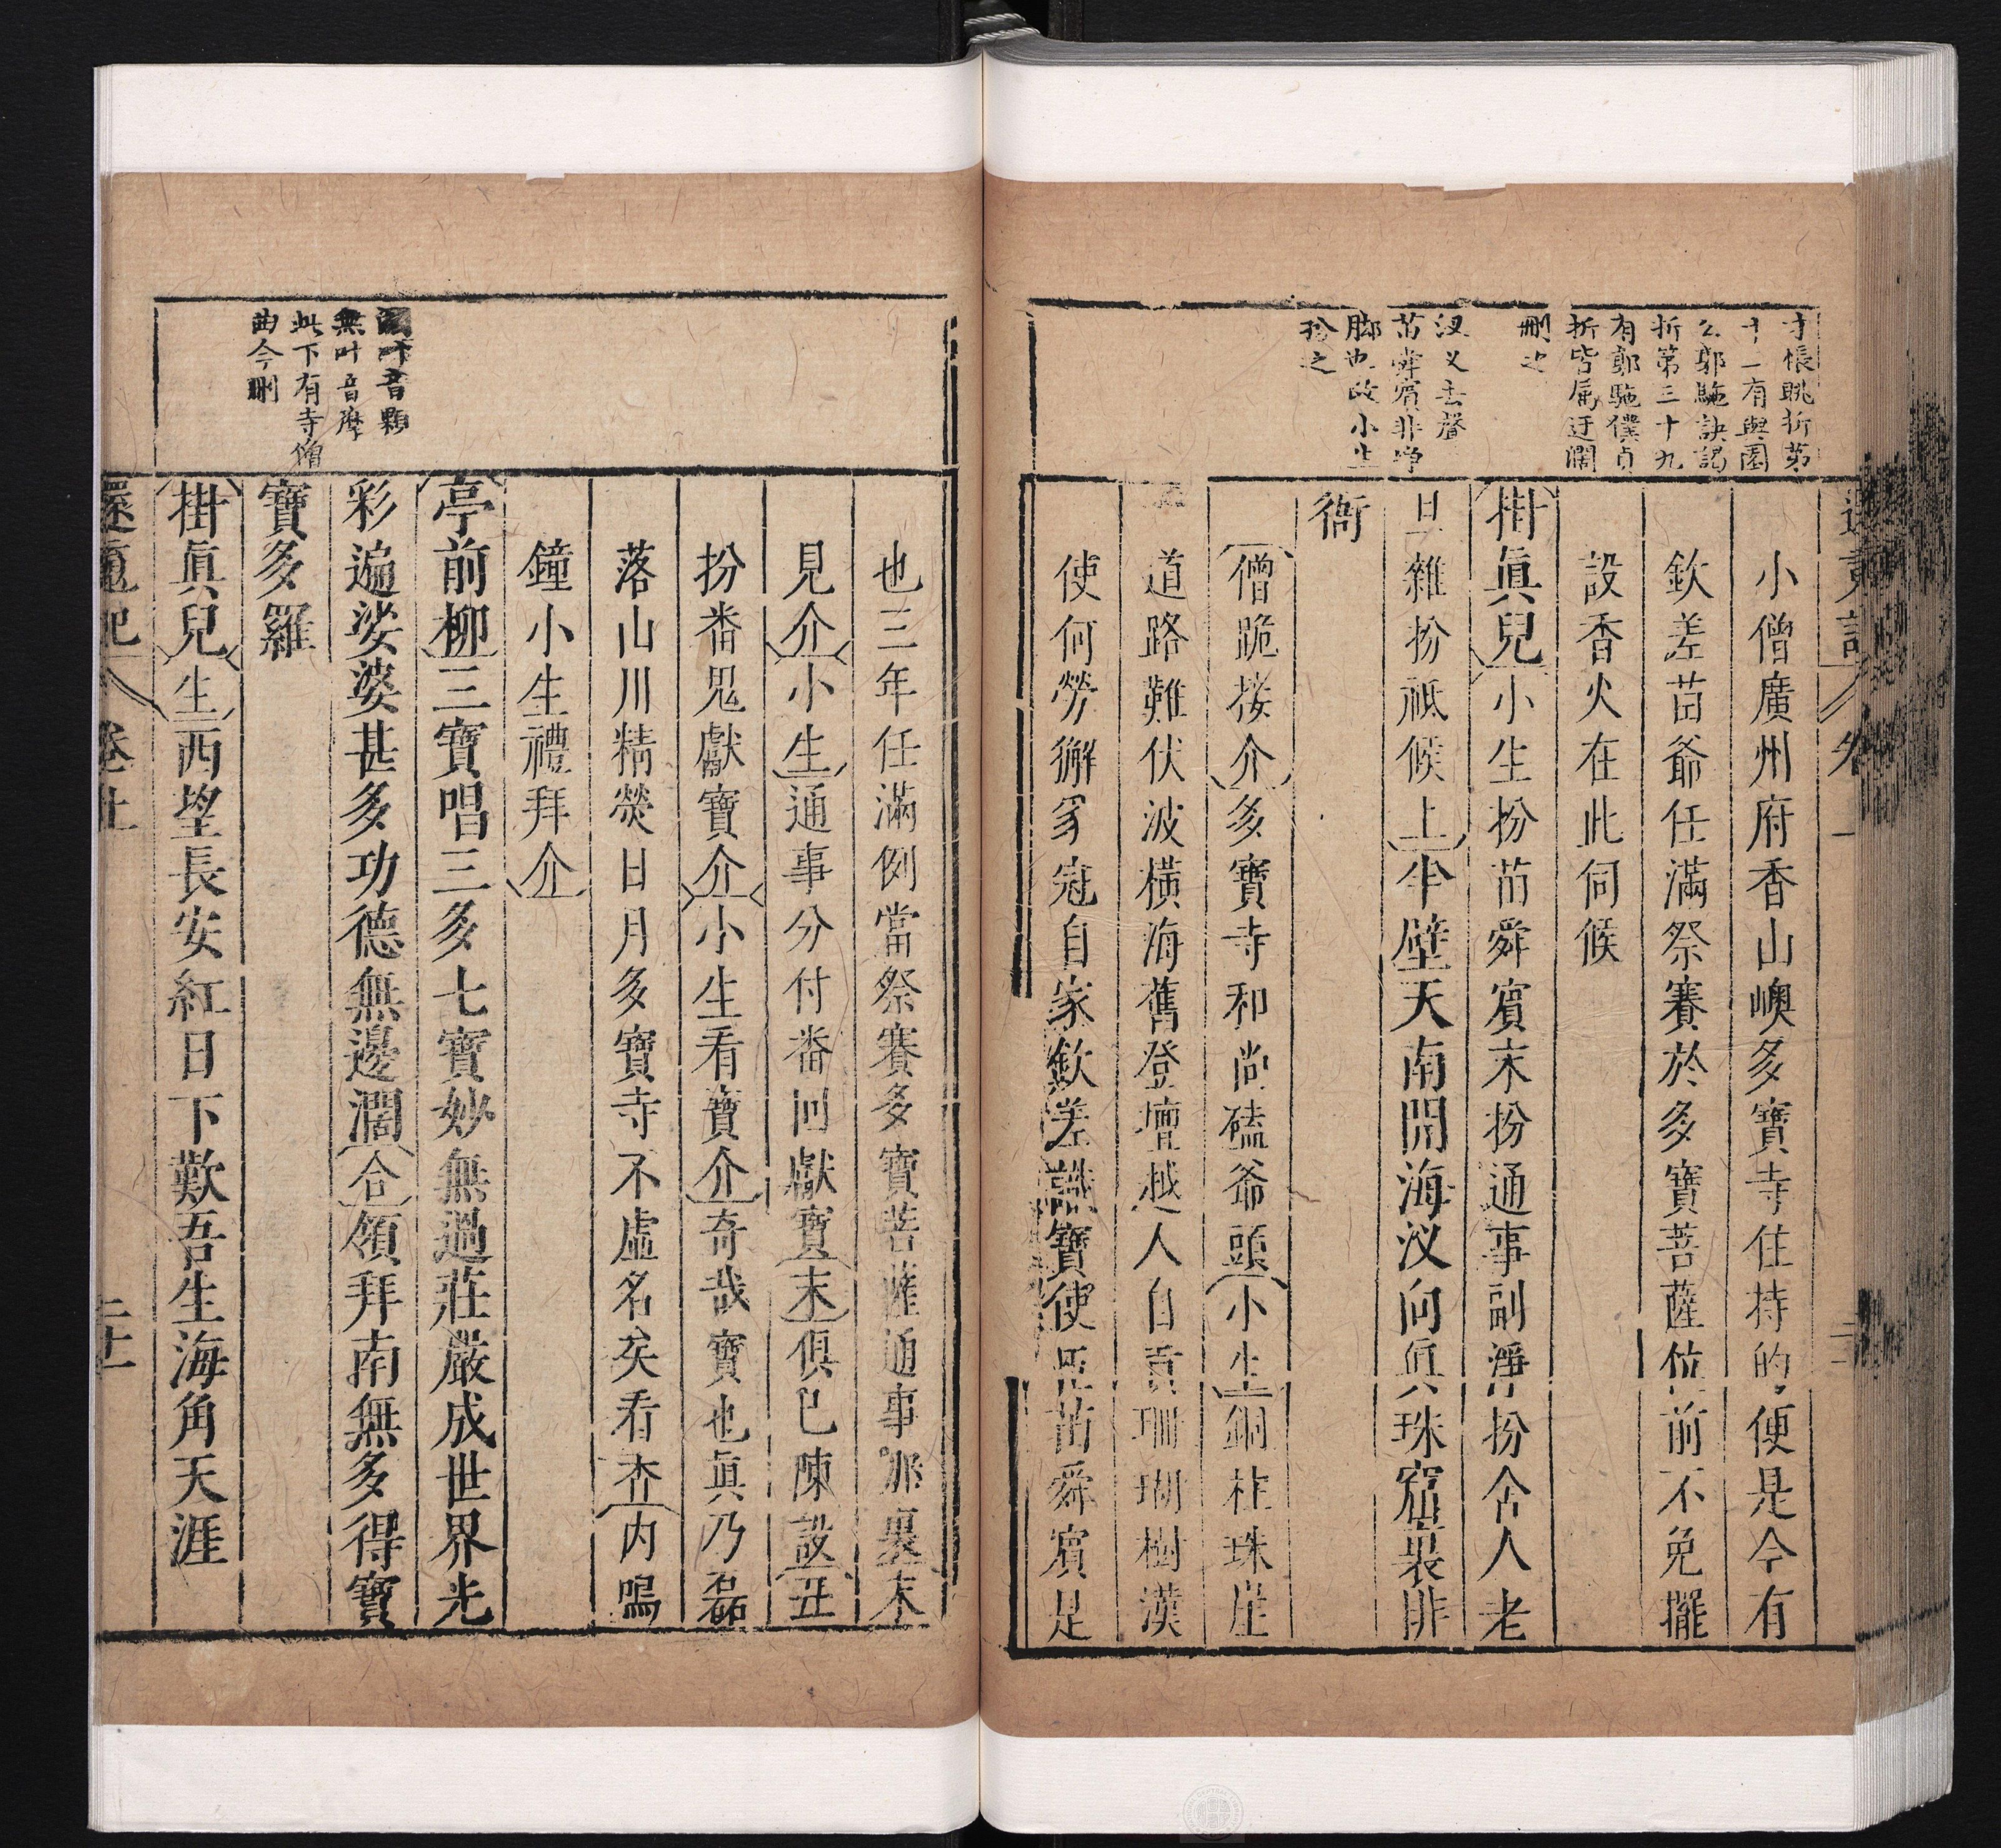 才悵眺折第
十一有與園
公郭駞訣謁
折第三十九
有郭駞僕貞
折皆屬迂濶
刪之
汊叉去聲
苗舜賓非淨
脚也改小生
扮之
小僧廣州府香山嶴多寶寺住持的便是今有
欽差苗爺任滿祭賽於多寶菩薩位前不免擺
設香火在此伺候
掛眞兒小生扮苗舜賓末扮通事副淨扮舍人老
旦雜扮祗候上半壁天南開海汊向眞珠窟裏排
衙
僧跪接介多寶寺和尚磕爺頭小生銅柱珠崖
道路難伏波橫海舊登壇越人自貢珊瑚樹漢
使何勞獬豸冠自家欽差識寶使臣苗舜賓是
也三年任滿例當祭賽多寶菩薩通事那裏末
見介小生通事分付番回獻寶末俱已陳設丑
扮番鬼獻寶介小生看寶介奇哉寶也眞乃磊
落山川精熒日月多寶寺不虛名矣看香內鳴
鐘小生禮拜介
亭前柳三寶唱三多七寶妙無過莊嚴成世界光
彩遍娑婆甚多功德無邊濶合領拜南無多得寶
寶多羅
掛眞兒生西望長安紅日下歎吾生海角天涯
叶音顆
無叶音摩
此下有寺僧
曲今刪
還魂記 卷上 二十一